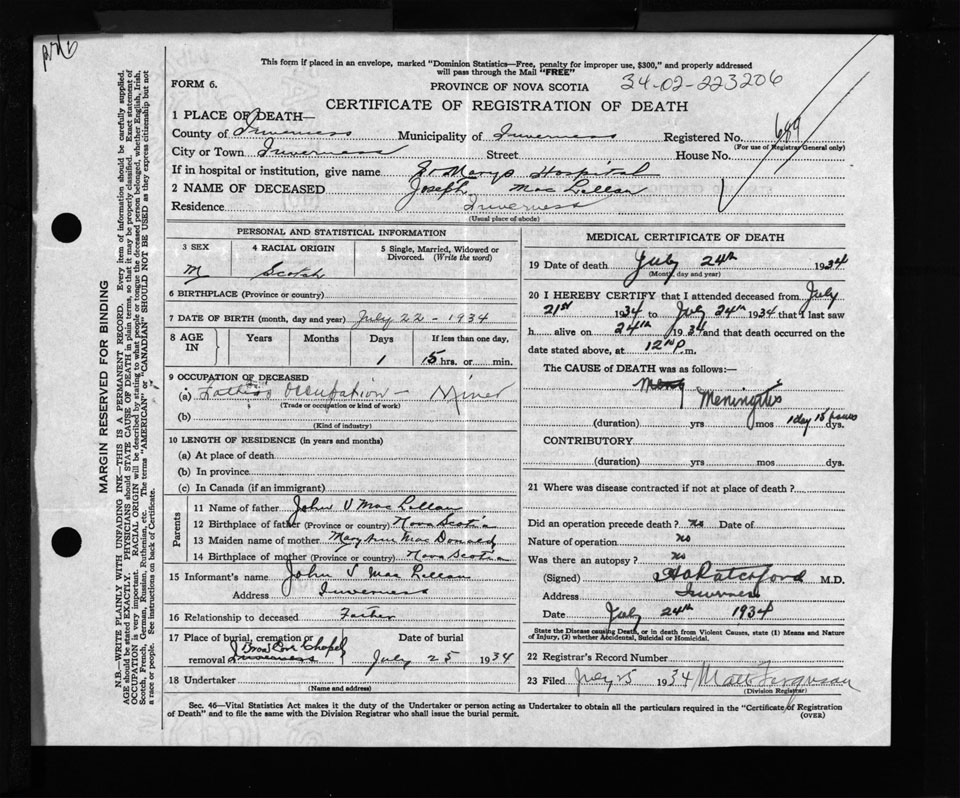 This form if placed in an envelope, marked "Dominion Statistics—Free, penalty for improper use, $300," and properly addressed
will pass through the Mail "FREE"
FORM 6.
PROVINCE OF NOVA SCOTIA
34-02-223206
CERTIFICATE OF REGISTRATION OF DEATH
1 PLACE OF DEATH—
County of Inverness Municipality of Inverness Registered No. 689
(For use of Registrar General only)
City or Town Inverness Street House No.
If in hospital or institution, give name St Marys Hospital
2 NAME OF DECEASED Joseph Mac Lellan
Residence Inverness
(Usual place of abode)
PERSONAL AND STATISTICAL INFORMATION
3 SEX 4 RACIAL ORIGIN 5 Single, Married, Widowed or
Divorced. (Write the word)
M Scotch
6 BIRTHPLACE (Province or country)
7 DATE OF BIRTH (month, day and year) July 22 - 1934
8 AGE IN Years Months Days If less than one day,
1 15 hrs. or min.
9 OCCUPATION OF DECEASED
(a) Father's Occupation — Miner
(Trade or occupation or kind of work)
(b)
(Kind of industry)
10 LENGTH OF RESIDENCE (in years and months)
(a) At place of death
(b) In province
(c) In Canada (if an immigrant)
Parents
11 Name of father John V Mac Lellan
12 Birthplace of father (Province or country) Nova Scotia
13 Maiden name of mother Mary Ann Mac Donald
14 Birthplace of mother (Province or country) Nova Scotia
15 Informant's name John V Mac Lellan
Address Inverness
16 Relationship to deceased Father
17 Place of burial, cremation or Date of burial
Broad Cove Chapel
removal Inverness July 25 1934
18 Undertaker
(Name and address)
MEDICAL CERTIFICATE OF DEATH
19 Date of death July 24th 1934
(Month, day and year)
20 I HEREBY CERTIFY that I attended deceased from July
21st 1934 to July 24th 1934 that I last saw
h alive on 24th 1934 and that death occurred on the
date stated above, at 12 P.m.
The CAUSE OF DEATH was as follows:
Meningitis
(duration) yrs mos 1 day 15 hours dys.
CONTRIBUTORY
(duration) yrs mos dys.
21 Where was disease contracted if not at place of death?
Did an operation precede death? no Date of
Nature of operation no
Was there an autopsy? no
(Signed) Ratchford M.D.
Address Inverness
Date July 24th 1934
State the Disease causing Death, or in death from Violent Causes, state (1) Means and Nature
of Injury, (2) whether Accidental, Suicidal or Homicidal.
22 Registrar's Record Number
23 Filed July 25 1934 Ferguson
(Division Registrar)
Sec. 46—Vital Statistics Act makes it the duty of the Undertaker or person acting as Undertaker to obtain all the particulars required in the "Certificate of Registration
of Death" and to file the same with the Division Registrar who shall issue the burial permit.
(OVER)
MARGIN RESERVED FOR BINDING
N.B.—WRITE PLAINLY WITH UNFADING INK—THIS IS A PERMANENT RECORD. Every item of information should be carefully supplied.
AGE should be stated EXACTLY. PHYSICIANS should STATE CAUSE OF DEATH in plain terms, so that it may be properly classified. Exact statement of
OCCUPATION is very important. RACIAL ORIGIN will be described by stating to what people or tongue the deceased person belonged, whether English, Irish,
Scotch, French, German, Russian, Ruthenian, etc. The terms "AMERICAN" or "CANADIAN" SHOULD NOT BE USED as they express citizenship but not
a race or people. See instructions on back of Certificate.